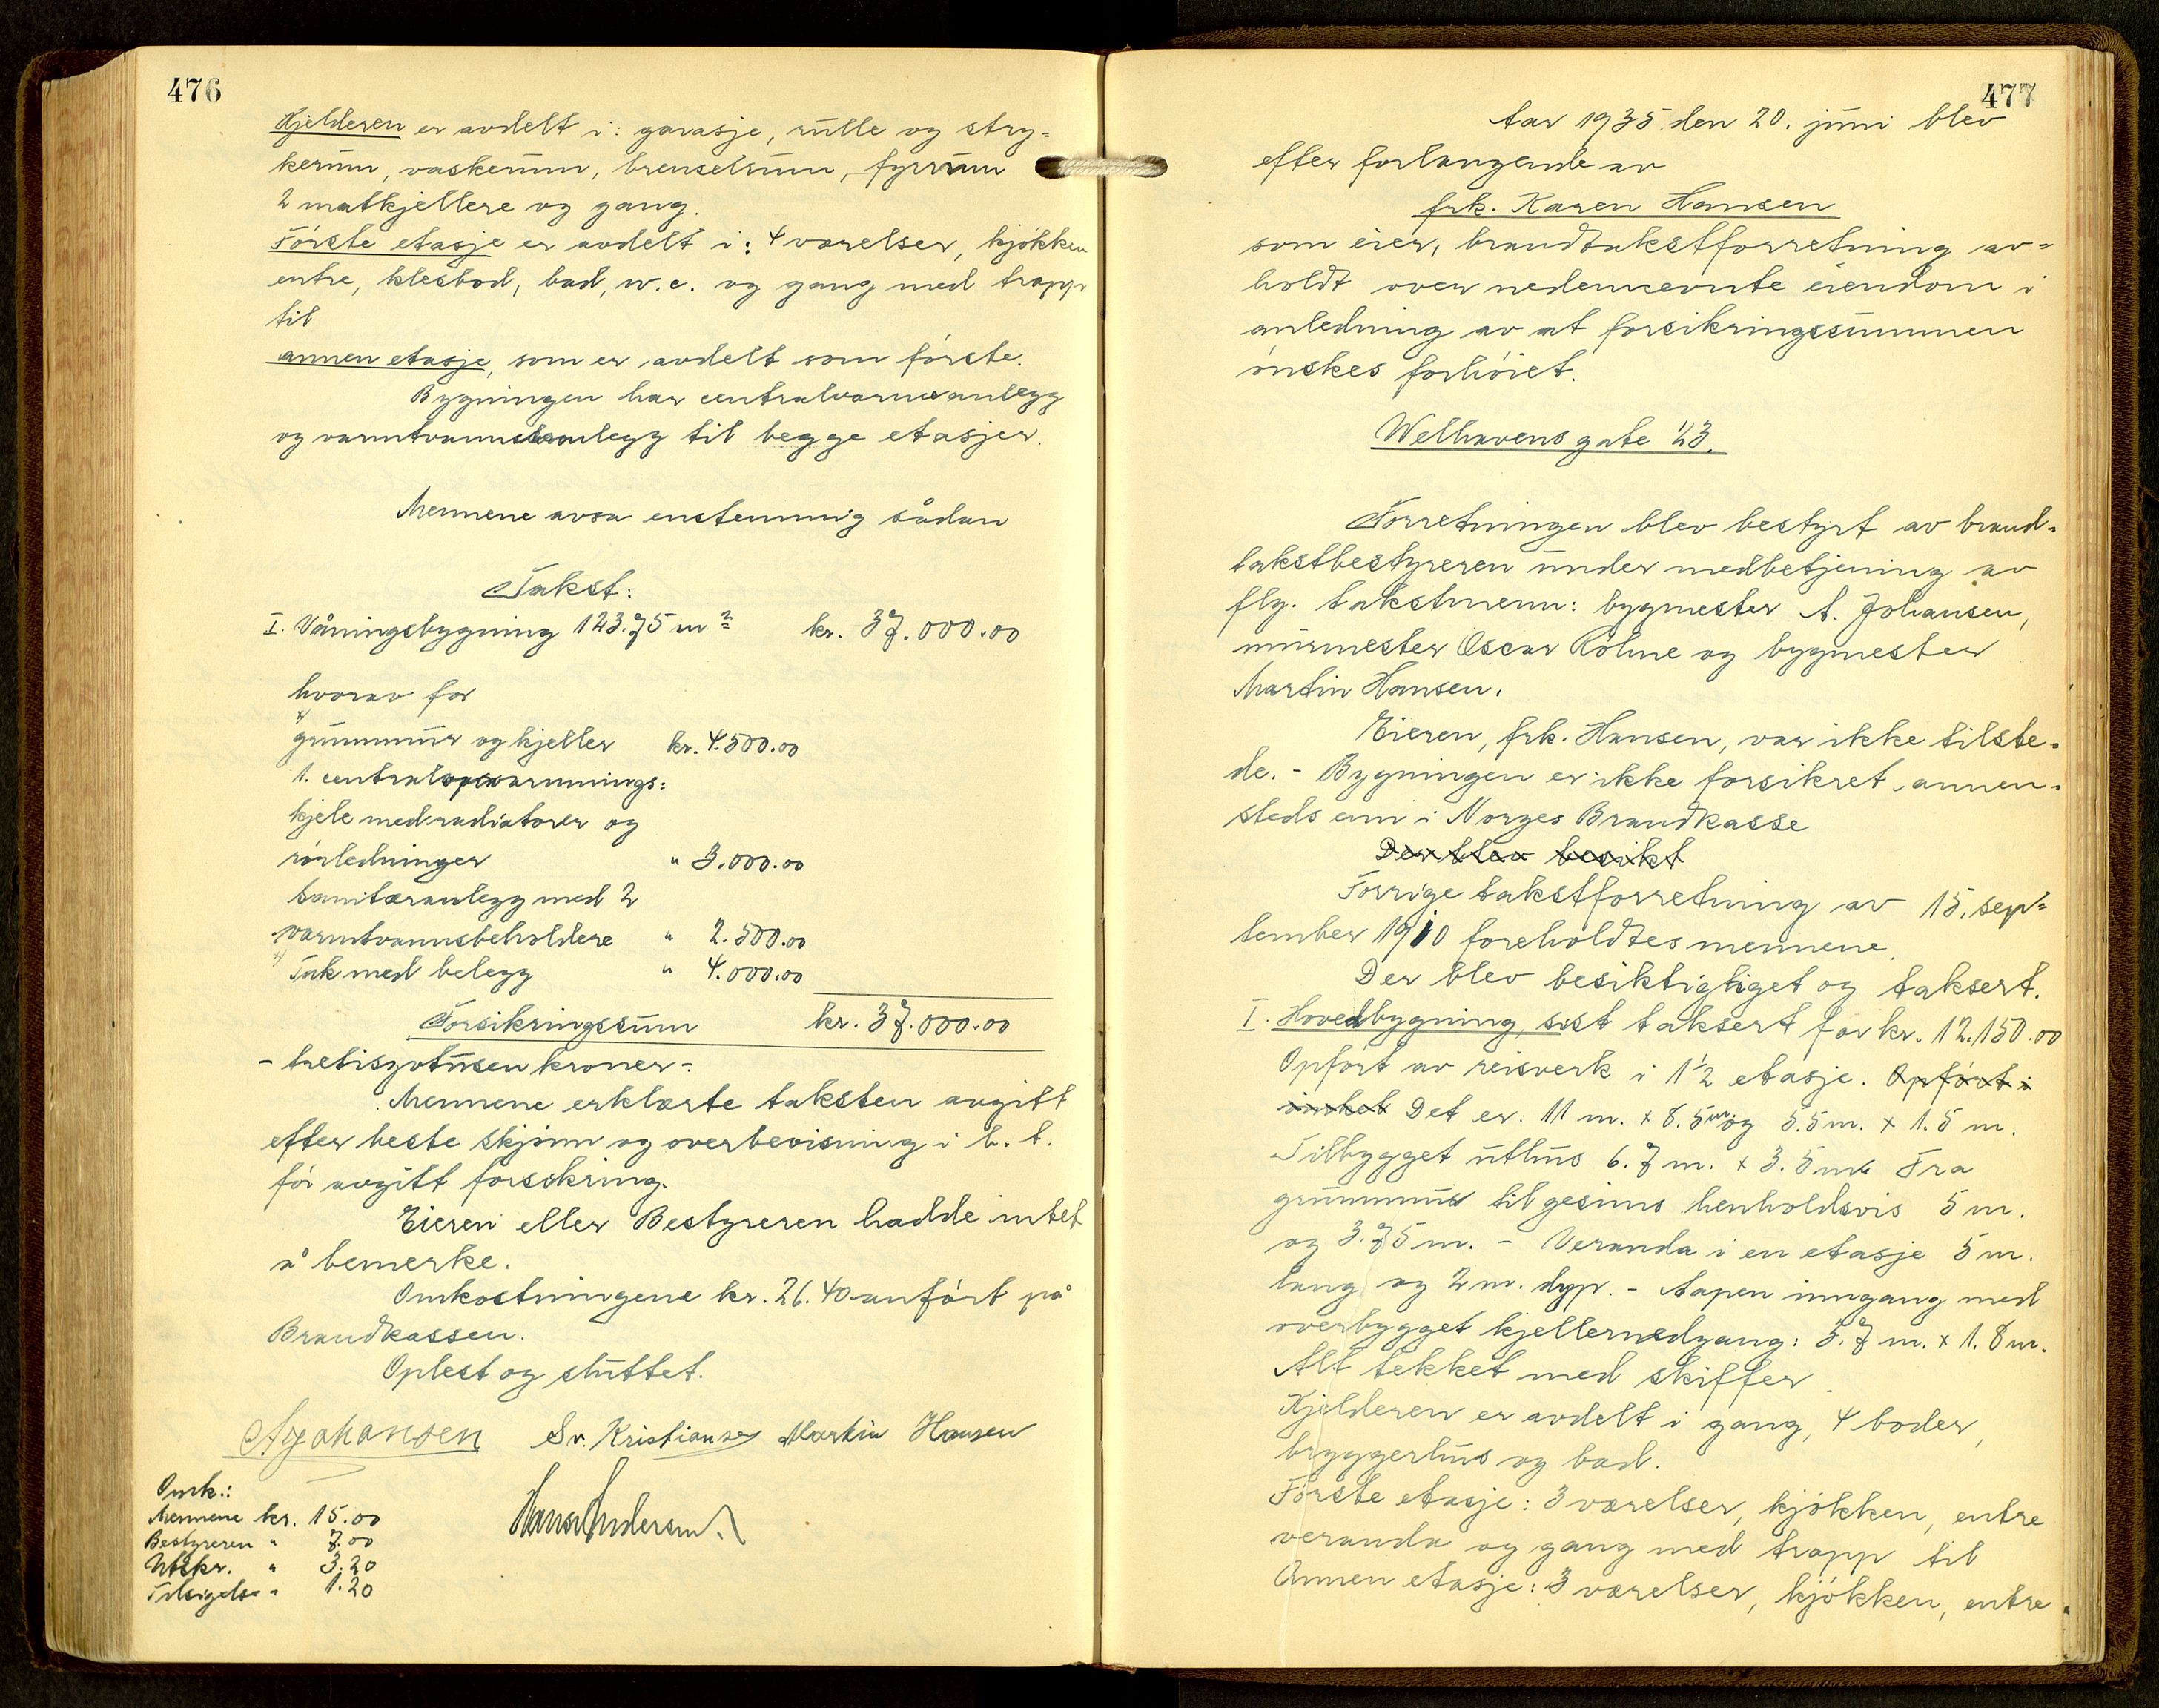 476
Kjelderen er avdelt i: garasje, rulle og stry-
kerum, vaskerum, brenselsrum, fyrrum
2 matkjellere og gang.
Første etasje er avdelt i: 4 værelser, kjøkken
entre, klesbod, bad, w.c. og gang med trapp
til
annen etasje, som er avdelt som første.
Bygningen har centralvarmeanlegg
og varmtvannsanlegg til begge etasjer.
Mennene avsa enstemmig sådan
Takst:
I. Våningsbygning 123.75 m² kr. 37.000.00
hvorav for
grunnmur og kjeller kr. 4.500.00
1. centralopvarmnings-
kjele med radiatorer og
rørledninger " 3.000.00
Sanitæranlegg med 2
varmtvannsbeholdere " 2.500.00
Tak med belegg " 4.000.00
Forsikringssum kr. 37.000.00
- tretisyvtusen kroner -
Mennene erklærte taksten avgitt
efter beste skjønn og overbevisning i h. t.
før avgitt forsikring.
Eieren eller Bestyreren hadde intet
å bemerke.
Omkostningene kr. 26.40 anført på
Brandkassen.
Oplest og sluttet.
A Johansen Sv. Kristiansen Martin Hansen
Hans Andersen
Omk.:
Mennene kr. 15.00
Bestyreren " 7.00
Utskr. " 3.20
Tilsigelse " 1.20
477
Aar 1935 den 20. juni blev
efter forlangende av
frk. Karen Hansen
som eier, brandtakstforretning av-
holdt over nedennevnte eiendom i
anledning av at forsikringssummen
ønskes forhøiet.
Welhavens gate 23.
Forretningen blev bestyrt av brand-
takstbestyreren under medbetjening av
flg. takstmenn: bygmester A. Johansen,
murmester Oscar Röhne og bygmester
Martin Hansen.
Eieren, frk. Hansen, var ikke tilste-
de. - Bygningen er ikke forsikret annen-
steds enn i Norges Brandkasse
Der blev besikt
Forrige takstforretning av 15. sep-
tember 1910 foreholdtes mennene.
Der blev besiktigtiget og taksert.
I. Hovedbygning, sist taksert for kr. 12.150.00
Opført av reisverk i 1 1/2 etasje. Opført i
Det er: 11 m. x 8.5 m. og 5.5 m. x 1.5 m.
Tilbygget uthus 6.7 m. x 3.5 m. Fra
grunnmur til gesims henholdsvis 5 m.
og 3.75 m. - Veranda i en etasje 5 m.
lang og 2 m. dyp. - Aapen inngang med
overbygget kjellernedgang: 5.7 m. x 1.8 m.
Alt tekket med skiffer.
Kjelderen er avdelt i gang, 4 boder,
bryggerhus og bad.
Første etasje: 3 værelser, kjøkken, entre
veranda og gang med trapp til
Annen etasje: 3 værelser, kjøkken, entre